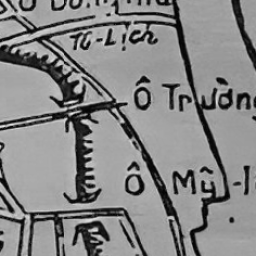 Tô-Lịch
Ô Trường
Ô Mỹ-l